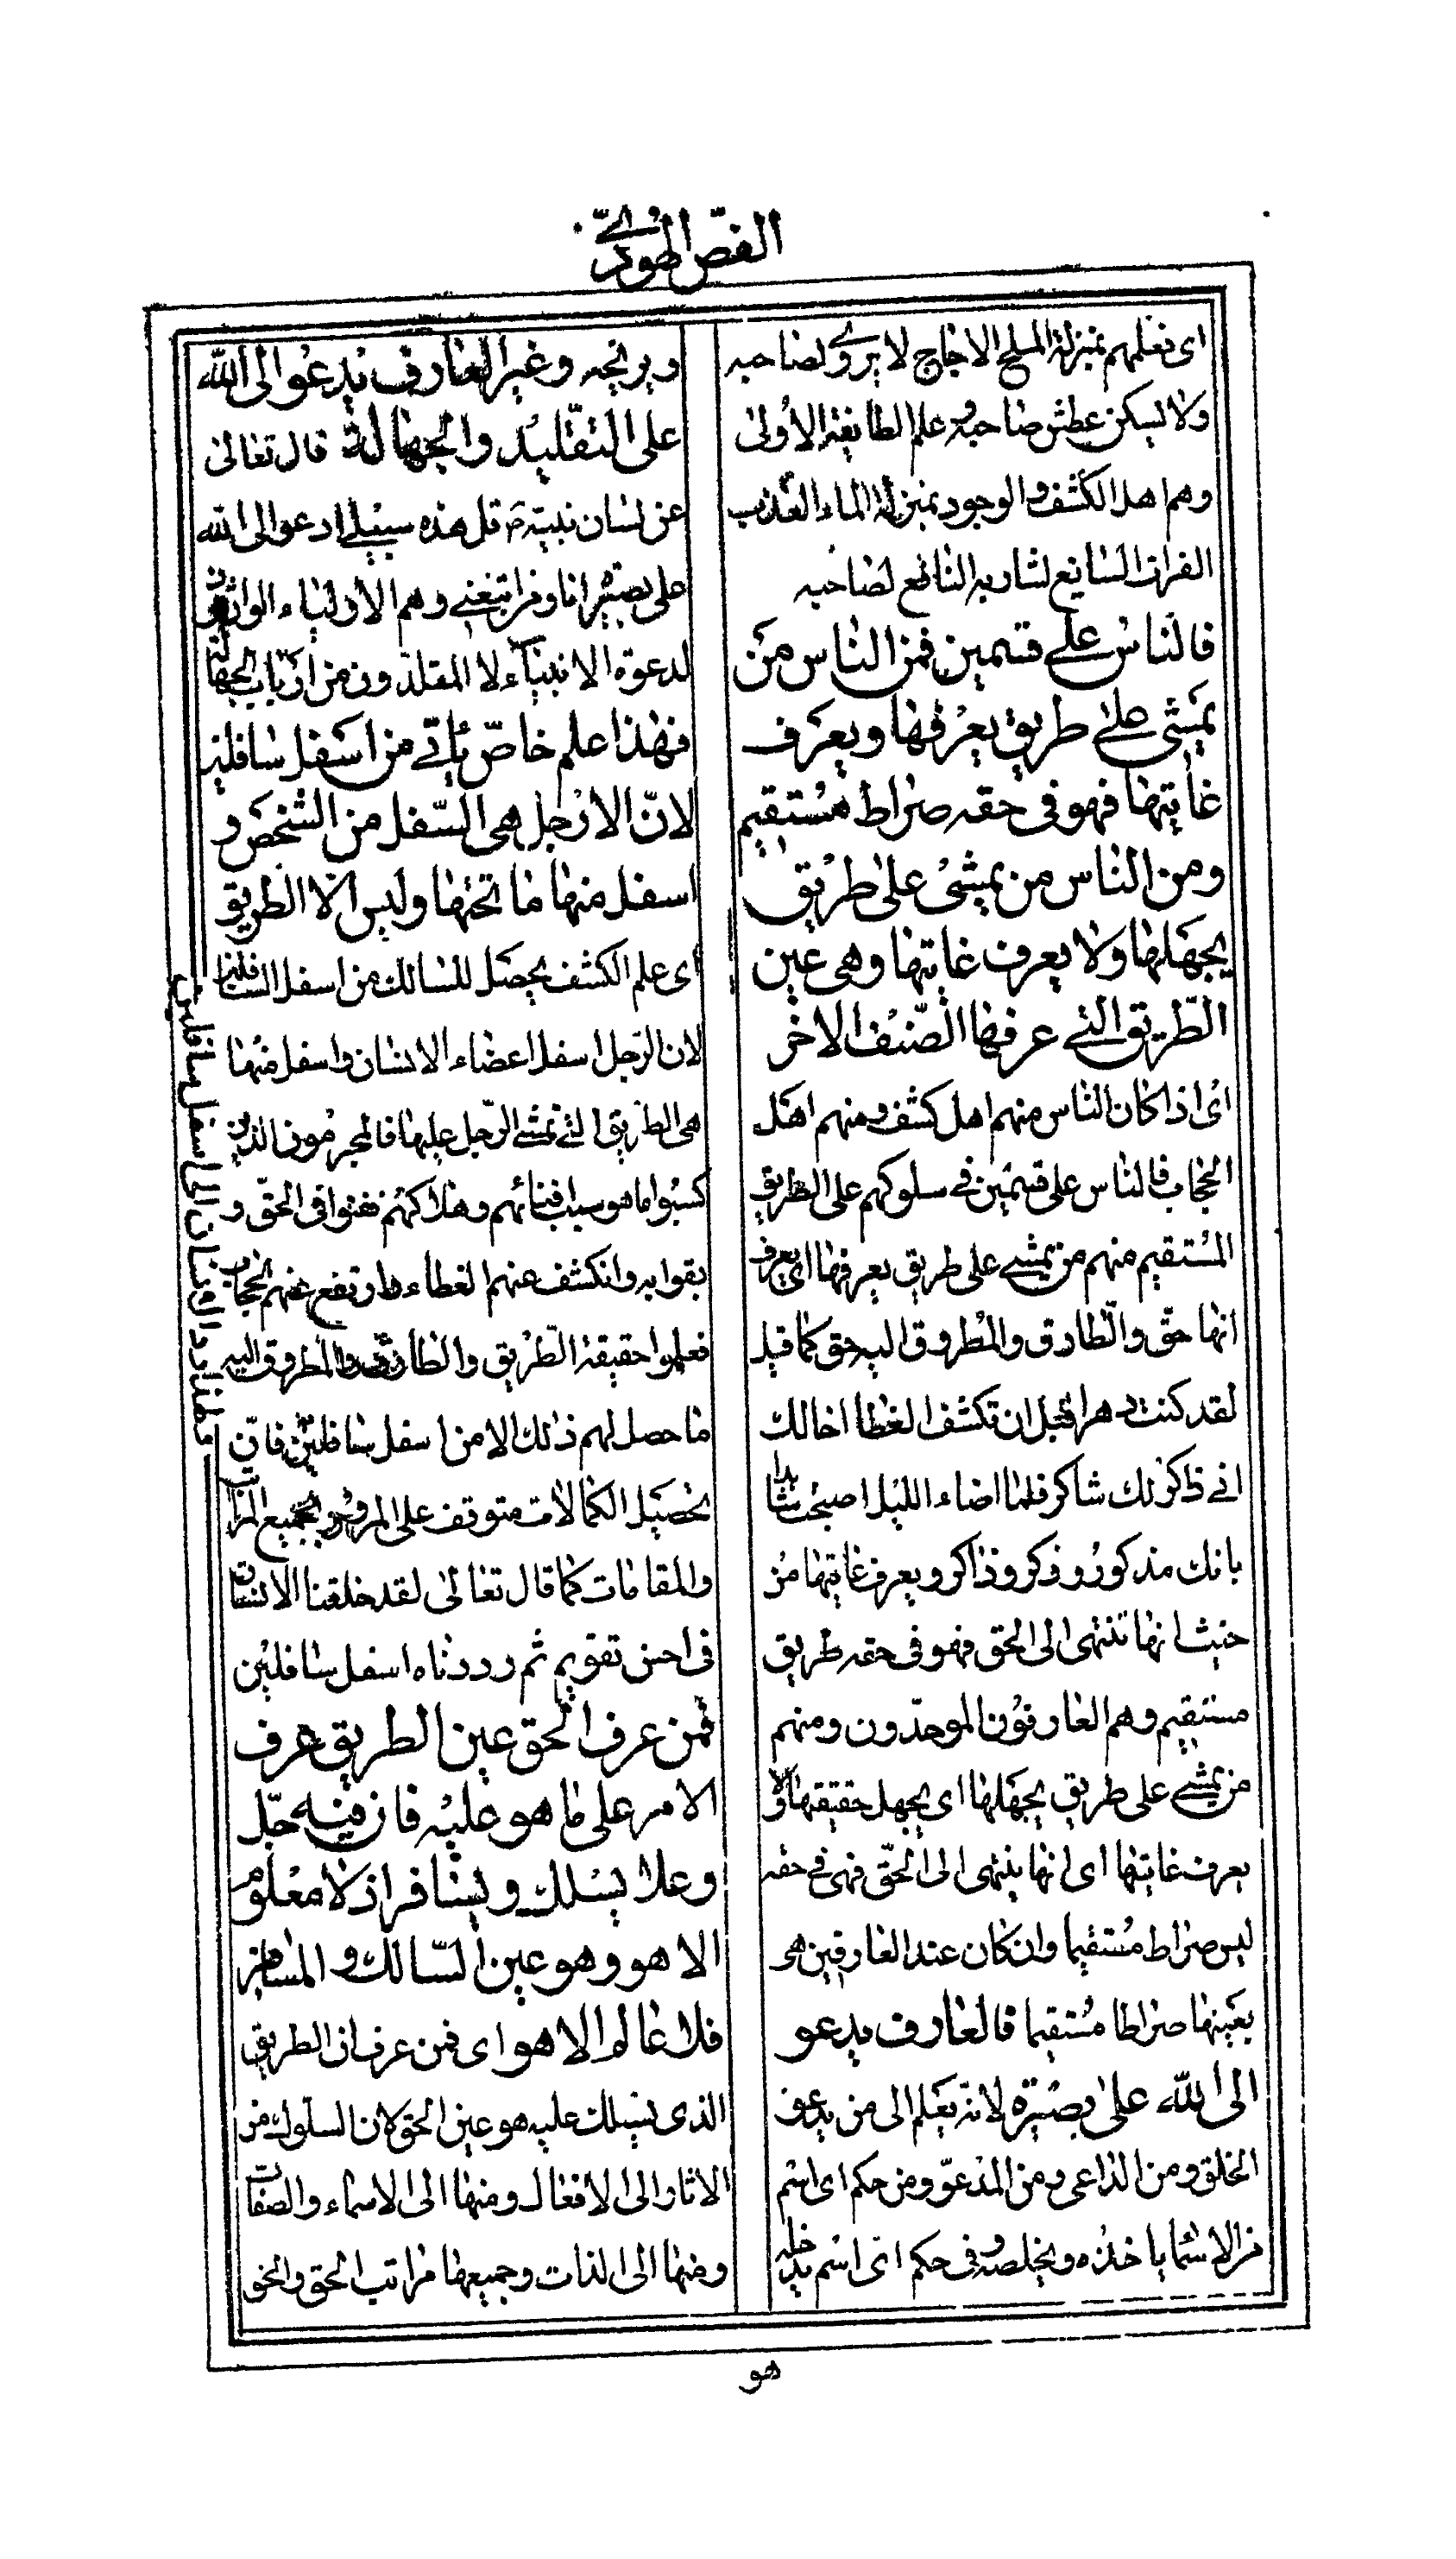 الفصّ الهودىّ
اى فعلمهم بمنزلة الملح الاجاج لا يروى لصاحبه
ولا يسكن عطش صاحبه و علم الطايفة الاولى
وهم اهل الكشف والوجود بمنزلة الماء العذب
الفرات السايغ لشاربه النافع لصاحبه
فالناس على قسمين فمن الناس من
يمشى على طريق يعرفها ويعرف
غايتها فهو فى حقه صراط مستقيم
ومن الناس من يمشى على طريق
يجهلها ولا يعرف غايتها وهى عين
الطّريق التى عرفها الصّنف الاخر
اى اذا كان الناس منهم اهل كشف ومنهم اهل
الحجاب فالناس على قسمين فى سلوكهم على الطريق
المستقيم منهم من يمشى على طريق يعرفها اى يعرف
انها حقّ والطارق والمطروق اليه حق كما قيل
لقد كنت دهرا قبل ان تكشف الغطا اخالك
انى ذاكر لك شاكر فلما اضاء الليل اصبحت شاهدا
بانك مذكور و ذكر و ذاكر و يعرف غايتها من
حيث انها تنتهى الى الحق فهو فى حقه طريق
مستقيم وهم العارفون الموحّدون ومنهم
من يمشى على طريق يجهلها اى يجهل حقيقتها ولا
يعرف غايتها اى انها ينتهى الى الحقّ فهى فى حقه
ليس صراط مستقيما وان كان عند العارفين هى
بعينها صراطا مستقيما فالعارف يدعو
الى الله على بصيرة لانه يعلم الى من يدعو
الخلق ومن الداعى ومن المدعوّ ومن حكم اى اسم
من الاسماء ياخذه ويخلصه وفى حكم اىّ اسم يدخله
ويربحه وغير العارف يدعوا الى الله
على التقليد والجهالة قال تعالى
عن لسان نبيّه ص قل هذه سبيلى ادعوا الى الله
على بصيرة انا ومن اتبعنى وهم الاولياء الوارثون
لدعوة الانبياء لا المقلدون من ارباب الجهالة
فهذا علم خاصّ ياتى من اسفل سافلين
لانّ الارجل هى السّفل من الشخص و
اسفل منها ما تحتها وليس الّا الطريق
اى علم الكشف يحصل للسالك من اسفل السافلين
لان الرّجل اسفل اعضاء الانسان واسفل منها
هى الطريق التى تمشى الرّجل عليها فالمجرمون الذين
كسبوا ما هو سبب فنائهم وهلاكهم ففنوا فى الحقّ و
بقوا به وانكشف عنهم الغطاء وارتفع عنهم الحجاب
فعلموا حقيقة الطّريق والطارق والمطروق اليه
ما حصل لهم ذلك الا من اسفل سافلين فانّ
تحصيل الكمالات متوقف على المرور بجميع المراتب
والمقامات كما قال تعالى لقد خلقنا الانسان
فى احسن تقويم ثم رددناه اسفل سافلين
فمن عرف الحق عين الطريق عرف
الامر على ما هو عليه فان فيه جلّ
وعلا يسلك ويسافر اذ لا معلوم
الا هو وهو عين السّالك و المسافر
فلا عالم الا هو اى فمن عرف ان الطريق
الذى يسلك عليه هو عين الحق لان السلوك من
الاثار الى الافعال ومنها الى الاسماء والصفات
ومنها الى الذات وجميعها مراتب الحق والحق
هو